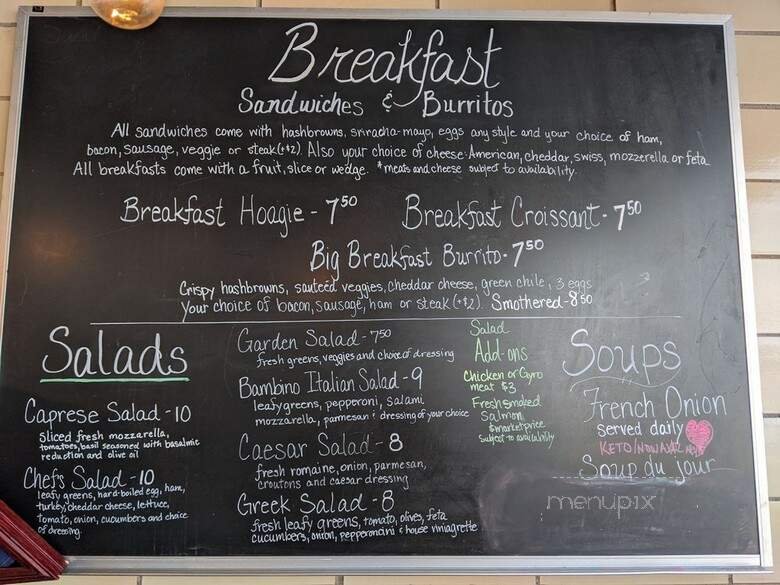 Breakfast
Sandwiches & Burritos
All sandwiches come with hashbrowns, sriracha-mayo, eggs any style and your choice of ham,
bacon, sausage, veggie or steak (+$2) Also your choice of cheese: American, cheddar, swiss, mozzerella or feta
All breakfasts come with a fruit, slice or wedge. *meats and cheese subject to availability.
Breakfast Hoagie - 750
Breakfast Croissant - 750
Big Breakfast Burrito - 750
Crispy hashbrowns, sauteed veggies, cheddar cheese, green chile, 3 eggs
Your choice of bacon, sausage, ham or steak (+$2) Smothered - 850
Salads
Caprese Salad - 10
sliced fresh mozzarella,
tomatoes, basil seasoned with basalmic
reduction and olive oil
Chefs Salad - 10
leafy greens, hard-boiled egg, ham,
turkey, cheddar cheese, lettuce,
tomato, onion, cucumbers and choice
of dressing.
Garden Salad - 750
fresh greens, veggies and choice of dressing
Bambino Italian Salad - 9
leafy greens, pepperoni, salami
mozzarella, parmesan & dressing of your choice
Caesar Salad - 8
fresh romaine, onion, parmesan,
croutons and caesar dressing
Greek Salad - 8
fresh leafy greens, tomato, olives, feta
cucumbers, onion, pepperoncini & house viniagrette
Salad
Add-ons
Chicken or Gyro
meat $3
Fresh smoked
Salmon
$ market price
subject to availability
Soups
French Onion
served daily
KETO/
Soup du jour
menupix